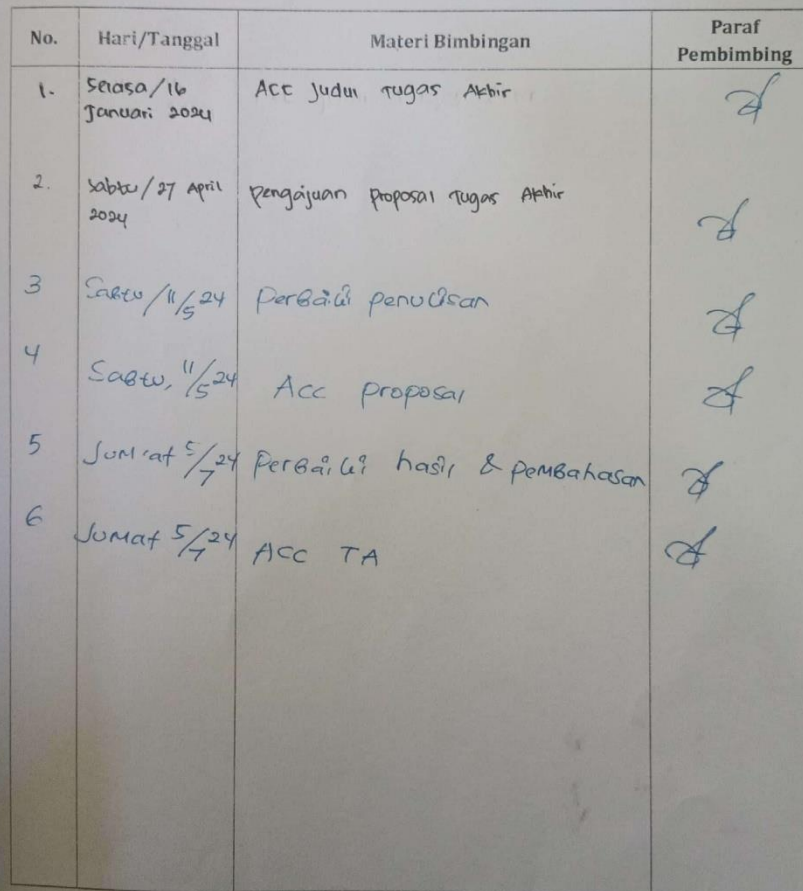 No. Hari/Tanggal Materi Bimbingan Paraf Pembimbing
1. Selasa/16 Januari 2024 Acc Judul Tugas Akhir
2. Sabtu/27 April 2024 Pengajuan Proposal Tugas Akhir
3 Sabtu/11/5 24 Perbaiki penulisan
4 Sabtu, 11/5 24 Acc proposal
5 Jum'at 5/7 24 Perbaiki hasil & pembahasan
6 Jumat 5/7 24 ACC TA